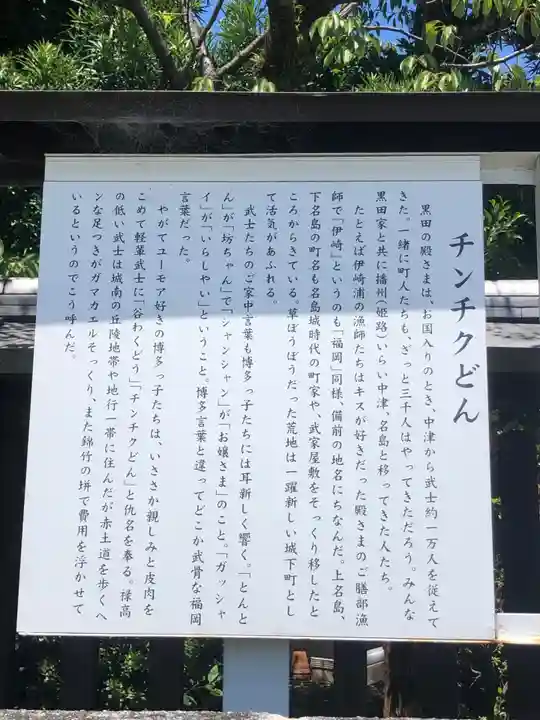 チンチクどん
黒田の殿さまは、お国入りのとき、中津から武士約一万人を従えて
きた。一緒に町人たちも、ざっと三千人はやってきただろう。みんな
黒田家と共に播州(姫路)いらい中津、名島と移ってきた人たち。
たとえば伊崎浦の漁師たちはキスが好きだった殿さまのご膳部漁
師で「伊崎」というのも「福岡」同様、備前の地名にちなんだ。上名島、
下名島の町名も名島城時代の町家や、武家屋敷をそっくり移したと
ころからきている。草ぼうぼうだった荒地は一躍新しい城下町とし
て活気があふれる。
武士たちのご家中言葉も博多っ子たちには耳新しく響く。「とんと
ん」が「坊ちゃん」で「シャンシャン」が「お嬢さま」のこと。「ガッシャ
イ」が「いらしやい」ということ。博多言葉と違ってどこか武骨な福岡
言葉だった。
やがてユーモア好きの博多っ子たちは、いささか親しみと皮肉を
こめて軽輩武士に「谷わくどう」「チンチクどん」と仇名を奉る。禄高
の低い武士は城南の丘陵地帯や地行一帯に住んだが赤土道を歩くヘ
ンな足つきがガマカエルそっくり、また錦竹の垪で費用を浮かせて
いるというのでこう呼んだ。